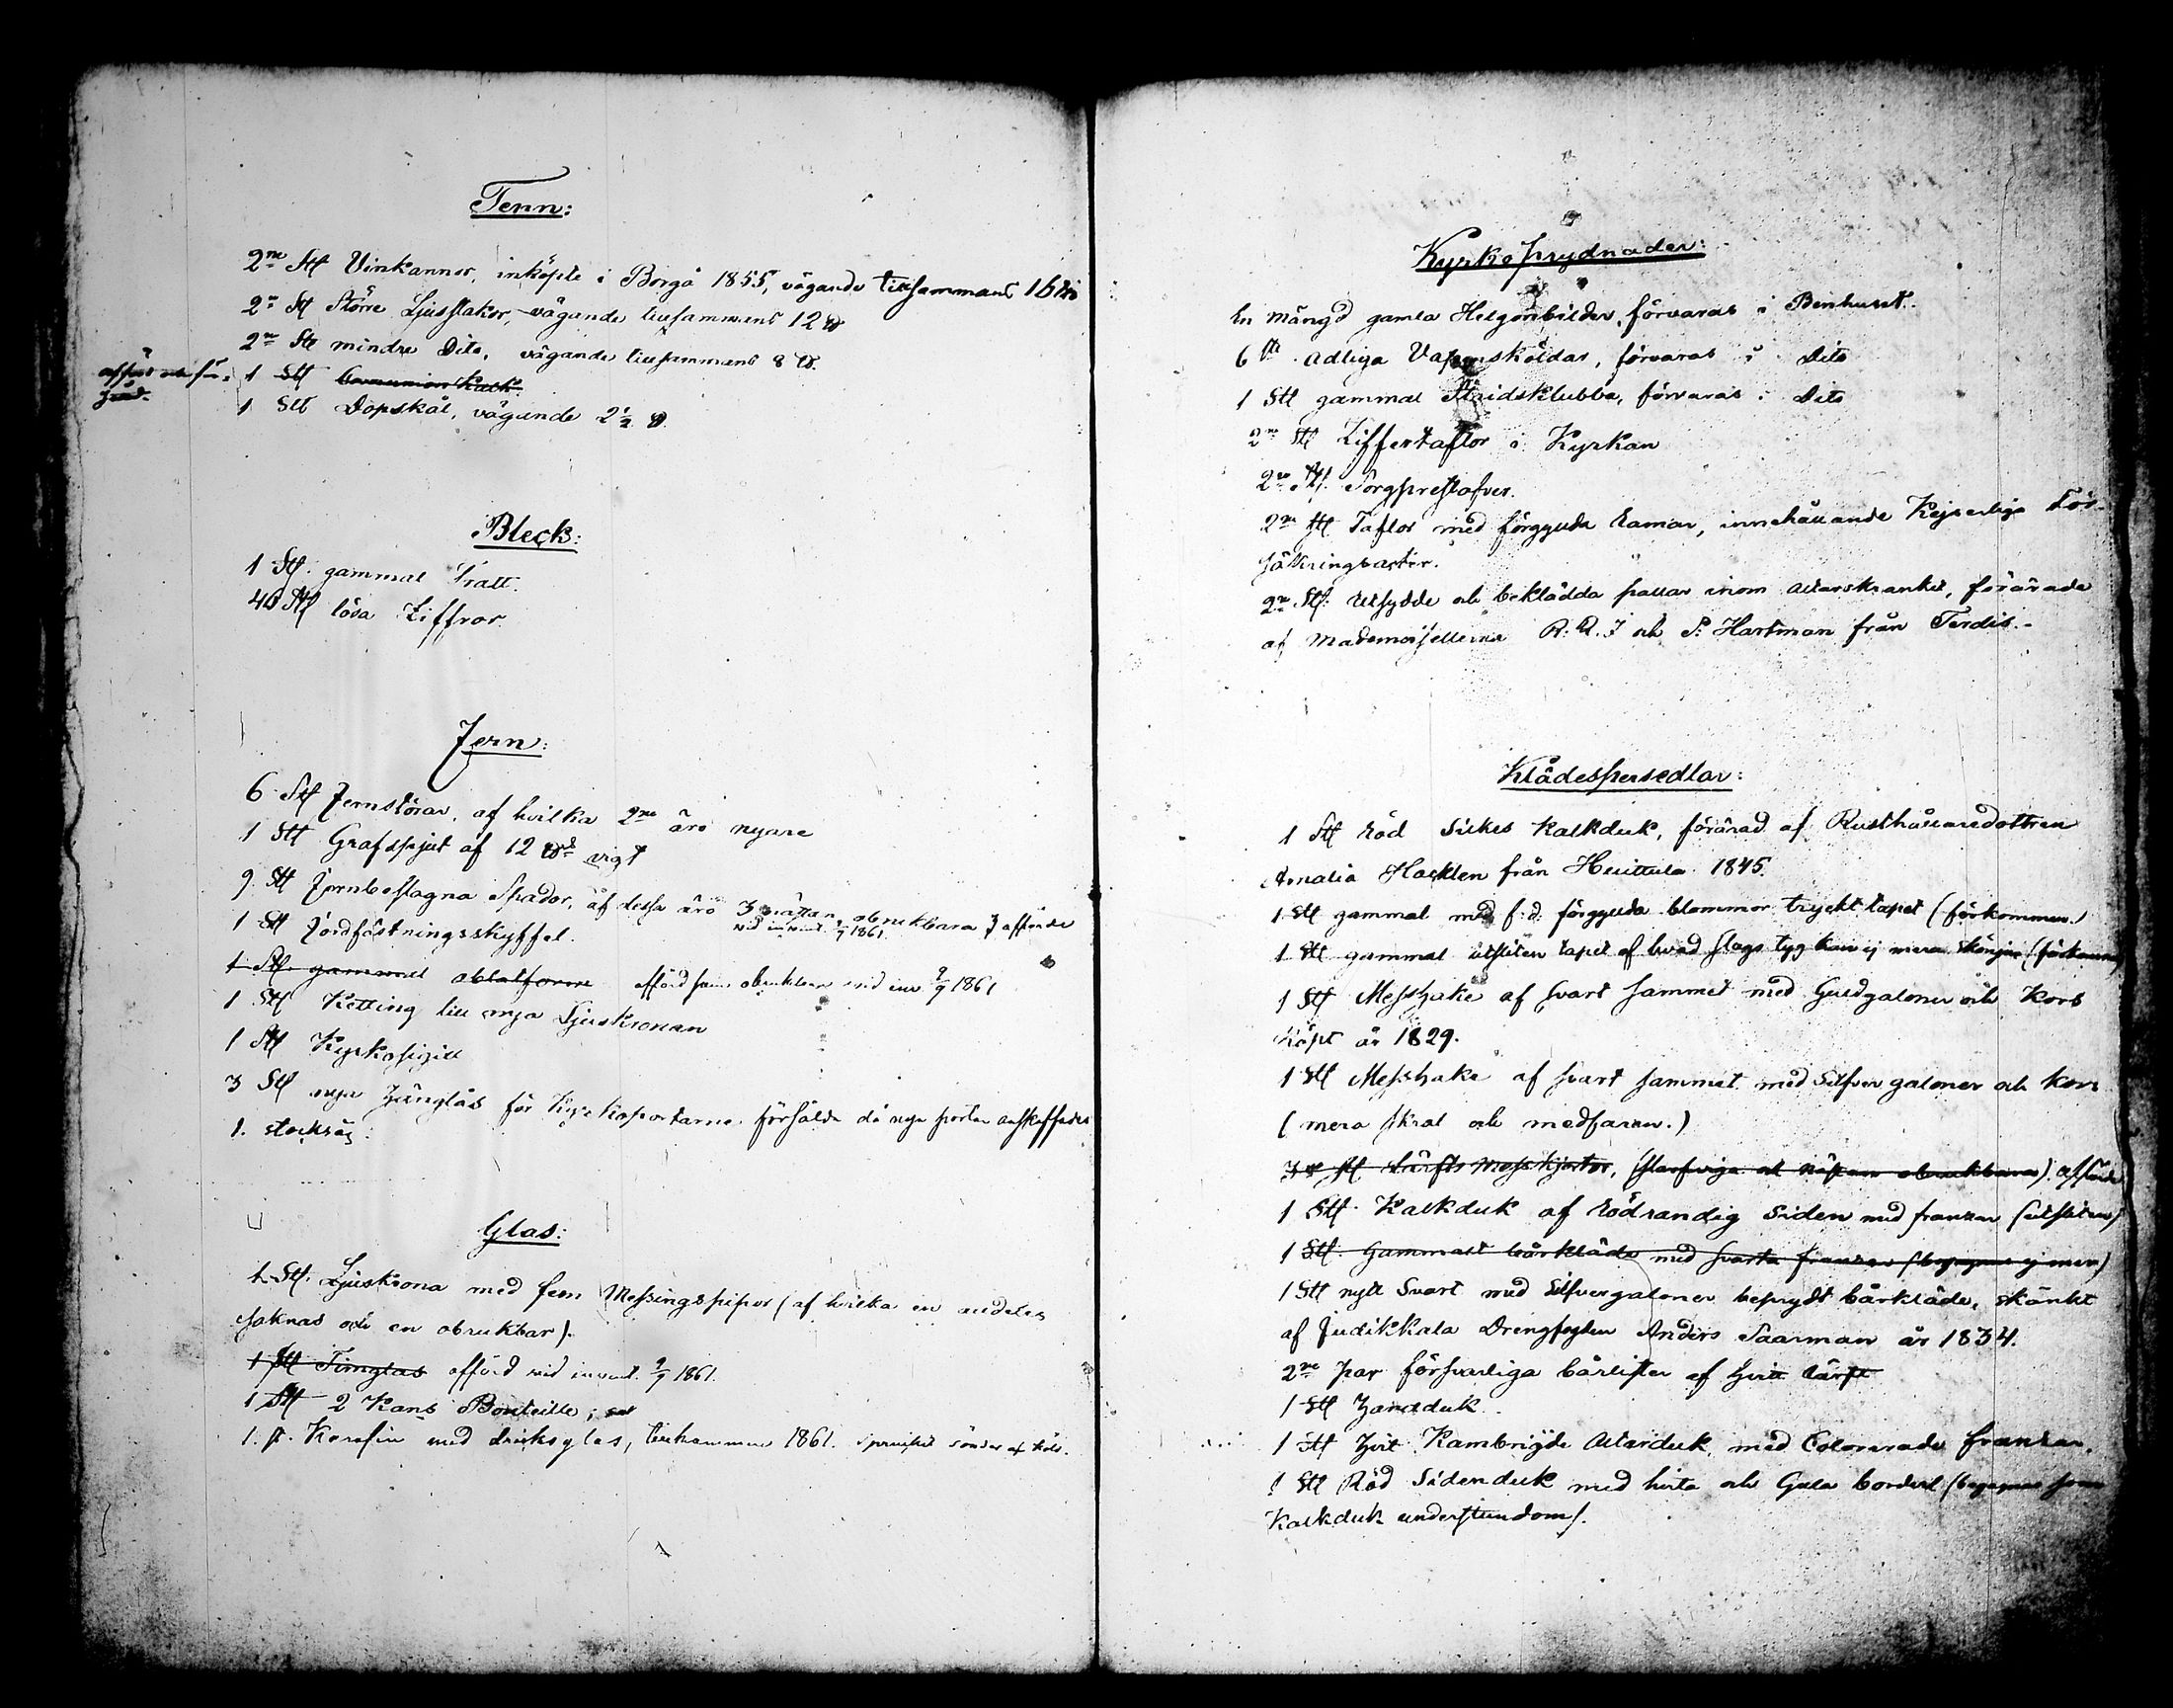 Tenn:
2ne Stt Vinkannor, inköpte i Borgå 1855, vägande tillsammans 16 ℔
2ne Stt Större Ljusstakar, vägande tillsammans 12 ℔
2ne Stt mindre Dito, vägande tillsammans 8 ℔.
1 Stt Communion Kalk.
1 Stt Dopskål, vägande 2½ ℔
Bleck:
1 Stt. gammal Tratt.
40 Stt lösa Ziffror
Jern:
6 Stt Jernstörar, af hvilka 2ne äro nyare
1 Stt Grafspjut af 12 ℔ vigt
9 Stt Jernbeslagna Spador, af dessa äro 3 nästan obrukbara 7 afförde
vid invent. 9/9 1861.
1 Stt Jordfästningsskyffel.
1 Stt. gammal oblatform afförd såsom obrukbar vid inv 9/9 1861
1 Stt Ketting till nya Ljuskronan
1 Stt Kyrkosigill
3 Stt nya Hänglås för Kyrkoportarne, försålda då nya portar anskaffades
1. stocksåg.
Glas:
1. Stt. Ljuskrona med fem Messingspipor (af hvilka en aldeles
saknas och en obrukbar).
1 Stt Timglas afförd vid invent. 9/9 1861.
1 Stt 2 Kans Bouteille;
1. st. Karafin med dricksglas, tillkommen 1861. sprucket sönder af köld.
Kyrkoprydnader:
En mängd gamla Helgonbilder, förvaras i Benhuset.
6 st. adliga Vapensköldar, förvaras i Dito
1 Stt gammal klubba, förvaras i Dito
2ne Stt Ziffertaflor i Kyrkan
2ne Stt. Sorgprestafver.
2ne Stt Taflor med förgyllda ramar, innehållande Kejserliga För-
säkringsakter.
2ne Stt. utsydde och beklädda pallar inom altarskranket, förärade
af Mademoisellerna R: Q. J och P: Hartman från Terdis.-
Klädespersedlar:
1 Stt röd Silkes Kalkduk, förärad af Rusthållaredottren
Amalia Hacklen från Heuittula 1845.
1 Stt gammal med f: d: förgyllda blommor tryckt tapet (förkommen.)
1 Stt gammal utsliten tapet af hvad slags tyg kan ej mera skönjas (förkommen)
1 Stt Messhake af svart sammet med Guldgaloner och Kors
köpt år 1829.
1 Stt Messhake af svart sammet med Silfvergaloner och kors
(mera skral och medfaren.)
3ne Stt Lärfts Messkjortor, (slarfviga och nästan obrukbara). afförde
1 Stt. Kalkduk af rödrandig Siden med franzar (utsliten)
1 Stt. Gammalt bårkläde med svarta franzar (begagnas ej mera)
1 Stt nytt Svart med Silfvergaloner beprydt bårkläde, skänkt
af Judikkala Drengfogden Anders Saarman år 1834.
2ne par försvarliga bårlister af hvitt Lärft
1 Stt Handduk.
1 Stt Hvit Kambrigde Altarduk, med Colorerade franzar.
1 Stt Röd Sidenduk med hvita och Gula borders (begagnas som
Kalkduk understundom).